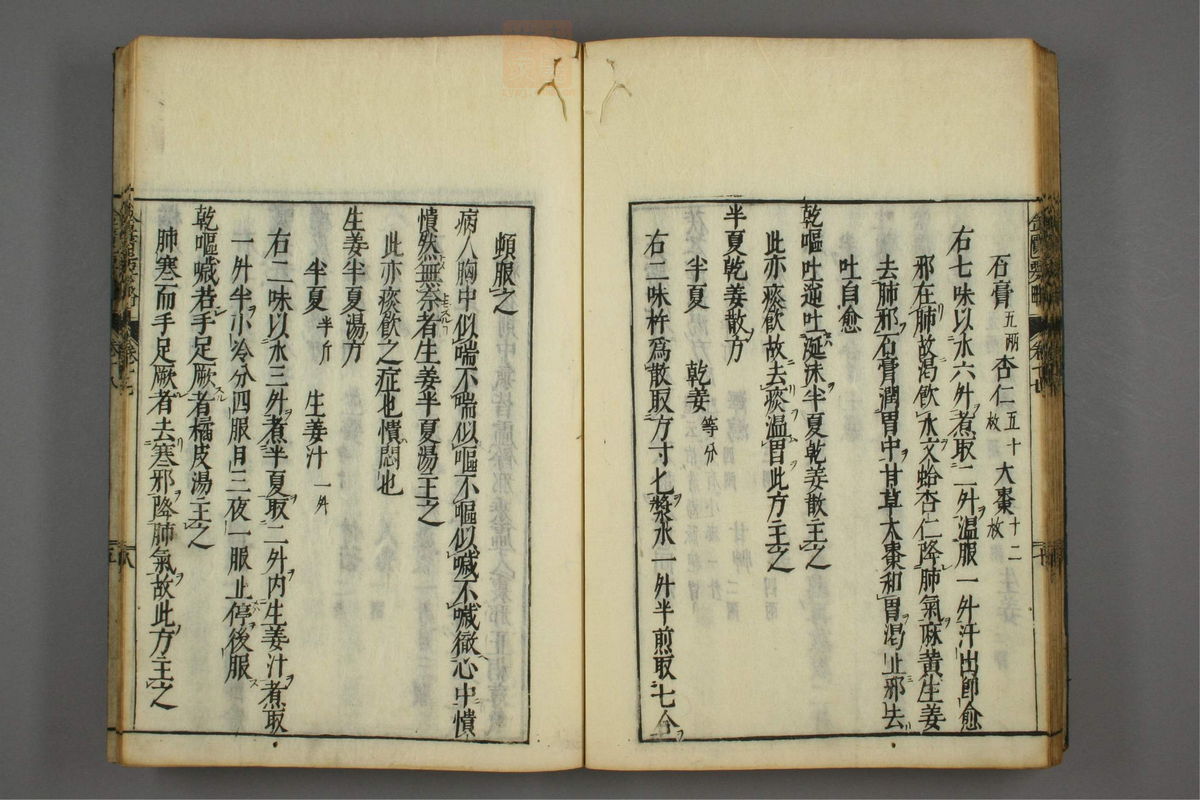 石膏五兩杏仁五十枚大棗十二枚
右七味以水六升煮取二升溫服一升汗出即愈
邪在肺故渴飲水文蛤杏仁降肺氣麻黄生姜
去肺邪石膏潤胃中甘草大棗和胃渴止邪去
吐自愈
乾嘔吐逆吐涎沫半夏乾姜散主之
此亦痰飲故去痰溫胃此方主之
半夏乾姜散方
半夏　乾姜等分
右二味杵爲散取方寸匕漿水一升半煎取七合
頓服之
病人胸中似喘不喘似嘔不嘔似噦不噦徹心中憒
憒然無奈者生姜半夏湯主之
此亦痰飲之症也憒悶也
生姜半夏湯方
半夏半斤　生姜汁一升
右二味以水三升煮半夏取二升内生姜汁煮取
一升半小冷分四服日三夜一服止停後服
乾嘔噦若手足厥者橘皮湯主之
肺寒而手足厥者去寒邪降肺氣故此方主之